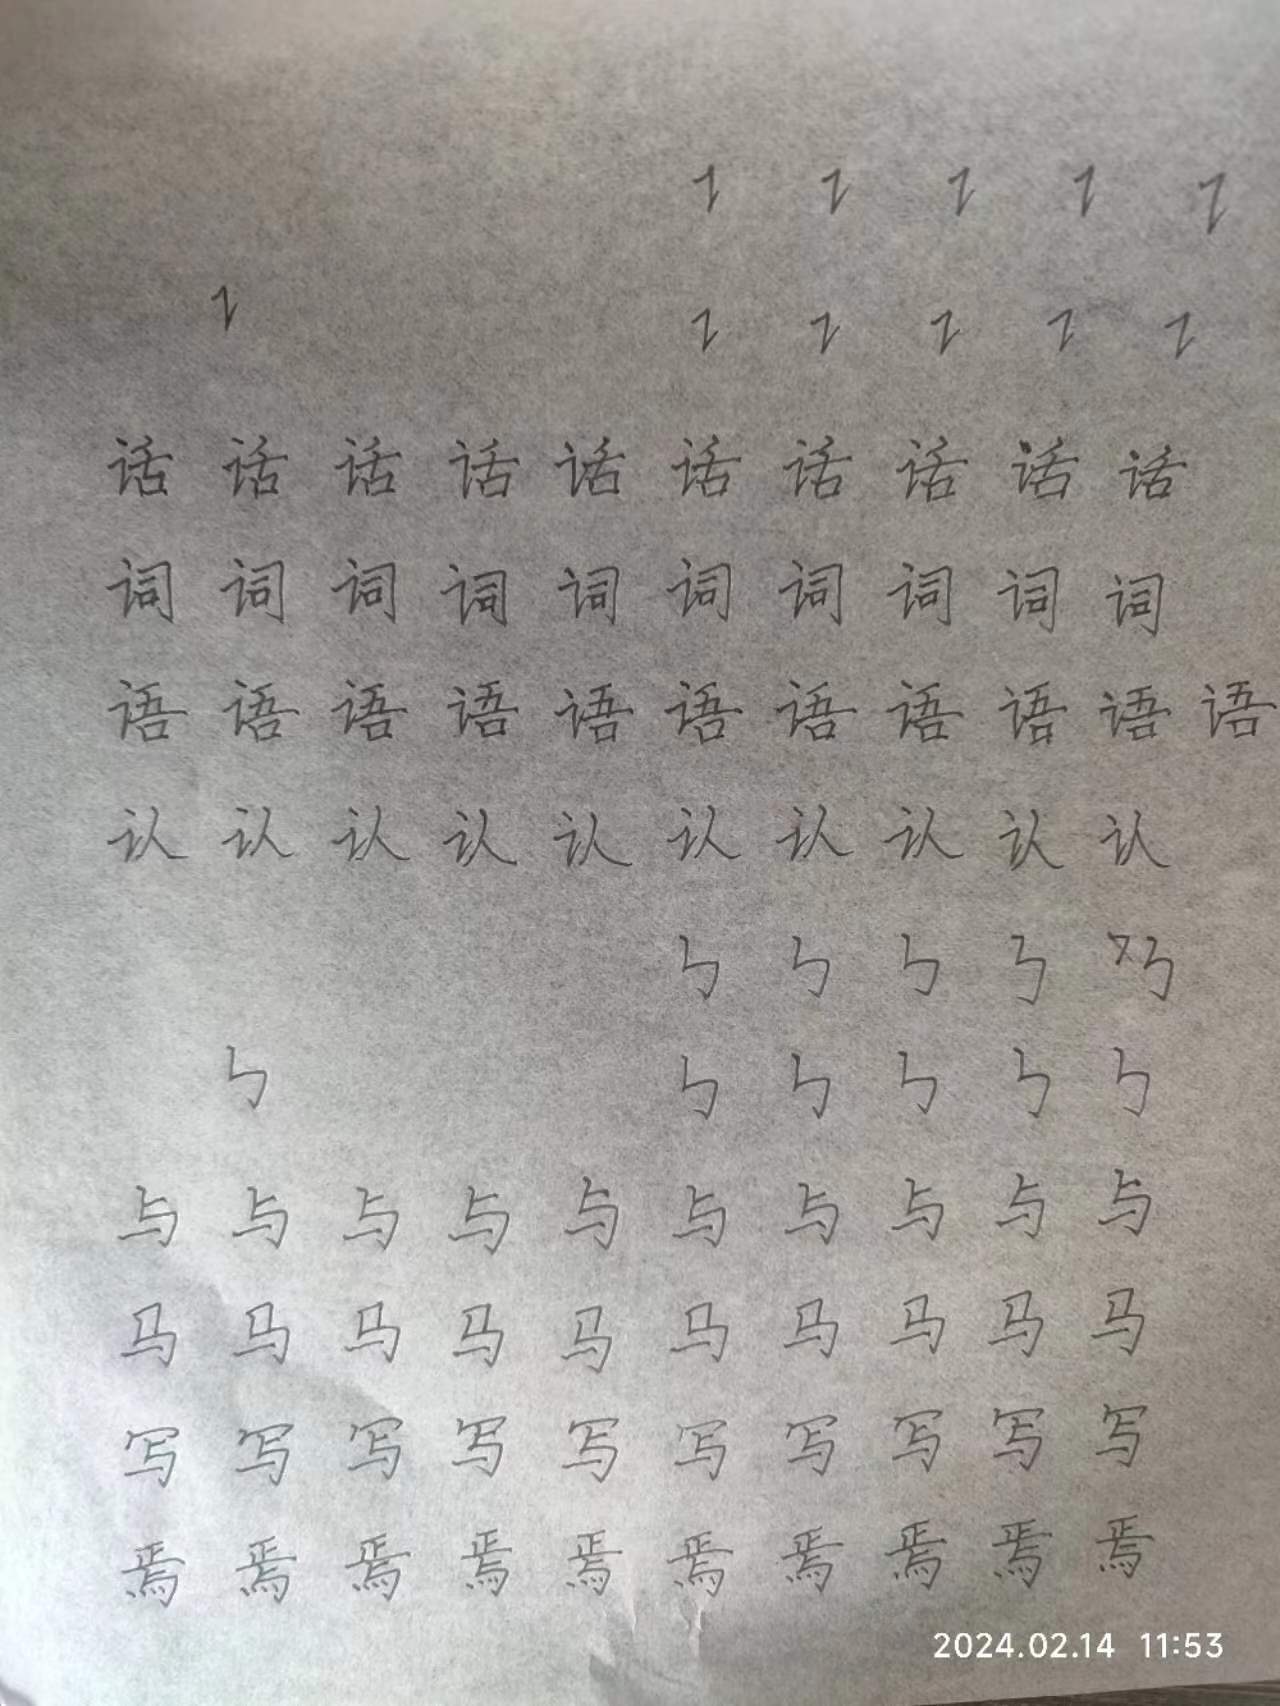 ㇊ ㇊ ㇊ ㇊ ㇊
㇊ ㇊ ㇊ ㇊ ㇊ ㇊
话 话 话 话 话 话 话 话 话 话
词 词 词 词 词 词 词 词 词 词
语 语 语 语 语 语 语 语 语 语 语
认 认 认 认 认 认 认 认 认 认
㇉ ㇉ ㇉ ㇉ ㇉
㇉ ㇉ ㇉ ㇉ ㇉ ㇉
与 与 与 与 与 与 与 与 与 与
马 马 马 马 马 马 马 马 马 马
写 写 写 写 写 写 写 写 写 写
焉 焉 焉 焉 焉 焉 焉 焉 焉 焉
2024.02.14 11:53